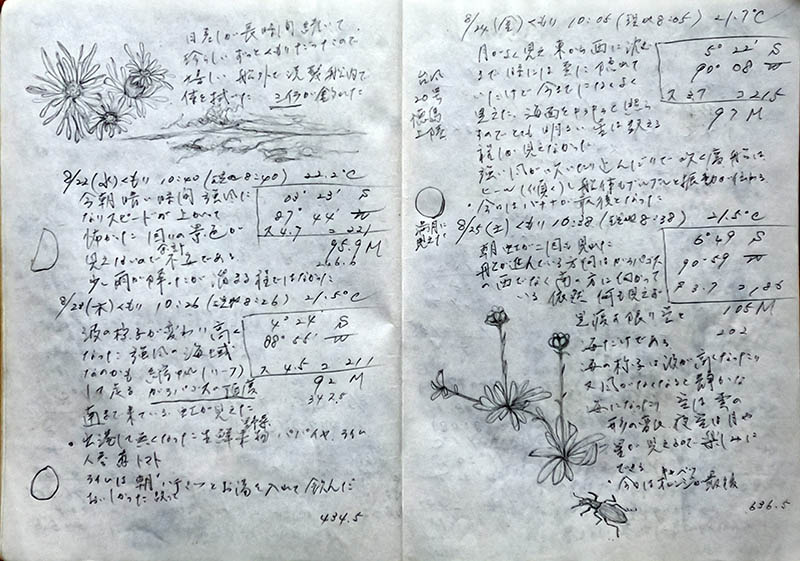 日差しが長時間続いて
珍しい ずっとくもりだったので
嬉しい 船外で洗髪 船内で
体を拭いた
8/22(水)くもり 10:40 (現地8:40) 22.2°C
今朝 暗い時間 強風に
なりスピードが上がって
怖かった 回りの景色が
見えないので不安である
少し雨が降ったが溜まる程ではなかった
03° 23' S
87° 44' W
ス 4.7 221
95.9 M
合計
266.6
8/23(木)くもり 10:26 (現地8:26) 21.5°C
波の様子が変わり高く
なった 強風の海域
なのかも 縮帆(リーフ)
して走る ガラパゴスの
南まで来ている 虹が見えた
4° 24' S
88° 55' W
ス 4.5 211
92 M
347.5
野菜
・出港して無くなった生鮮 果物 パパイヤ、ライム
人参 トマト
ライムは朝 ハチミツとお湯を入れて飲んだ
おいしかった
434.5
8/24(金)くもり 10:05 (現地8:05) 21.7°C
月がよく見え 東から西に沈む
まで 時には雲に隠れて
いたけど今までになくよく
見えた 海面をキラキラと照らす
のでとても明るい 星は数える
程しか見えなかった
強い風が吹いたり止んだりで 吹く度 船は
ヒール(傾く)し 船体もブルブルと振動が伝わる
・今日はバナナが最後となった
5° 22' S
90° 08 W
ス 3.7 215
97 M
台風
20号
徳島
上陸
満月に
見えた
8/25(土)くもり 10:38 (現地8:38) 21.5°C
朝 虹が二回も見れた
船が進んでいる方向はガラパゴス
の西でなく南の方に向かって
いる 依然 何も見えず
見渡す限り空と
海だけである
海の様子は波が高くなったり
又風がなくなると静かな
海になったり 空は雲の
形の変化 夜空は月や
星が見えるので楽しみに
できる
6° 49 S
90° 59 W
ス 3.7 186
105 M
202
キャベツ
・今日はオレンジが最後
636.5